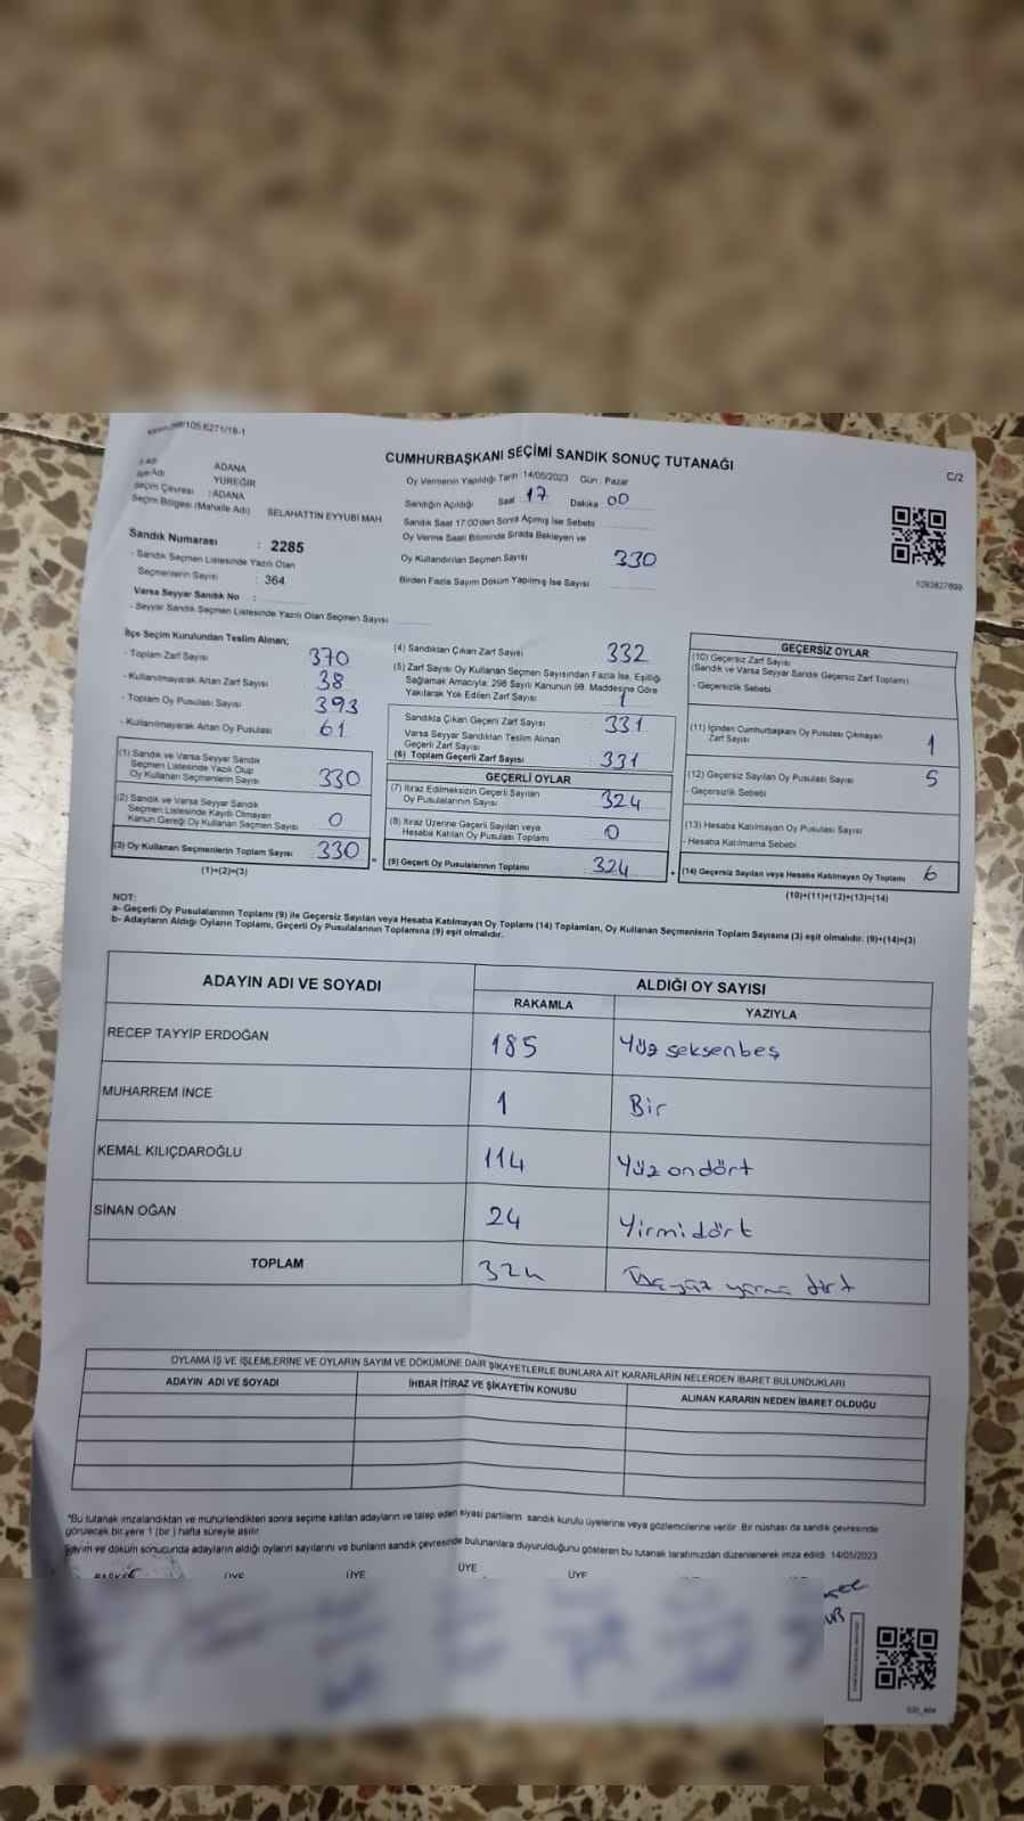 CUMHURBAŞKANI SEÇİMİ SANDIK SONUÇ TUTANAĞI
C/2
İlçe Adı YÜREĞİR
ADANA
Seçim Çevresi :ADANA
Seçim Bölgesi (Mahalle Adı) SELAHATTİN EYYUBİ MAH
Oy Vermenin Yapıldığı Tarih :14/05/2023 Gün : Pazar
Sandığın Açıldığı Saat 17 Dakika 00
Sandık Saat 17:00'den Sonra Açılmış İse Sebebi
Oy Verme Saati Bitiminde Sırada Bekleyen ve
Oy Kullandırılan Seçmen Sayısı 330
Birden Fazla Sayım Döküm Yapılmış İse Sayısı
Sandık Numarası : 2285
- Sandık Seçmen Listesinde Yazılı Olan
Seçmenlerin Sayısı : 364
Varsa Seyyar Sandık No :
- Seyyar Sandık Seçmen Listesinde Yazılı Olan Seçmen Sayısı
İlçe Seçim Kurulundan Teslim Alınan;
- Toplam Zarf Sayısı 370
- Kullanılmayarak Artan Zarf Sayısı 38
- Toplam Oy Pusulası Sayısı 393
- Kullanılmayarak Artan Oy Pusulası 61
(1) Sandık ve Varsa Seyyar Sandık
Seçmen Listesinde Yazılı Olup
Oy Kullanan Seçmenlerin Sayısı 330
(2) Sandık ve Varsa Seyyar Sandık
Seçmen Listesinde Kayıtlı Olmayan
Kanun Gereği Oy Kullanan Seçmen Sayısı 0
(3) Oy Kullanan Seçmenlerin Toplam Sayısı 330
(1)+(2)=(3)
(4) Sandıktan Çıkan Zarf Sayısı 332
(5) Zarf Sayısı Oy Kullanan Seçmen Sayısından Fazla İse, Eşitliği
Sağlamak Amacıyla; 298 Sayılı Kanunun 98. Maddesine Göre
Yakılarak Yok Edilen Zarf Sayısı 1
Sandıkta Çıkan Geçerli Zarf Sayısı 331
Varsa Seyyar Sandıktan Teslim Alınan
Geçerli Zarf Sayısı
(6) Toplam Geçerli Zarf Sayısı 331
GEÇERLİ OYLAR
(7) İtiraz Edilmeksizin Geçerli Sayılan
Oy Pusulalarının Sayısı 324
(8) İtiraz Üzerine Geçerli Sayılan veya
Hesaba Katılan Oy Pusulası Toplamı 0
(9) Geçerli Oy Pusulalarının Toplamı 324
GEÇERSİZ OYLAR
(10) Geçersiz Zarf Sayısı
(Sandık ve Varsa Seyyar Sandık Geçersiz Zarf Toplamı)
- Geçersizlik Sebebi
(11) İçinden Cumhurbaşkanı Oy Pusulası Çıkmayan
Zarf Sayısı 1
(12) Geçersiz Sayılan Oy Pusulası Sayısı 5
- Geçersizlik Sebebi
(13) Hesaba Katılmayan Oy Pusulası Sayısı
- Hesaba Katılmama Sebebi
(14) Geçersiz Sayılan veya Hesaba Katılmayan Oy Toplamı 6
(10)+(11)+(12)+(13)=(14)
NOT:
a- Geçerli Oy Pusulalarının Toplamı (9) ile Geçersiz Sayılan veya Hesaba Katılmayan Oy Toplamı (14) Toplamları, Oy Kullanan Seçmenlerin Toplam Sayısına (3) eşit olmalıdır. (9)+(14)=(3)
b- Adayların Aldığı Oyların Toplamı, Geçerli Oy Pusulalarının Toplamına (9) eşit olmalıdır.
ADAYIN ADI VE SOYADI ALDIĞI OY SAYISI
RAKAMLA YAZIYLA
RECEP TAYYİP ERDOĞAN 185 Yüz seksenbeş
MUHARREM İNCE 1 Bir
KEMAL KILIÇDAROĞLU 114 Yüz ondört
SİNAN OĞAN 24 Yirmidört
TOPLAM 324
OYLAMA İŞ VE İŞLEMLERİNE VE OYLARIN SAYIM VE DÖKÜMÜNE DAİR ŞİKAYETLERLE BUNLARA AİT KARARLARIN NELERDEN İBARET BULUNDUKLARI
ADAYIN ADI VE SOYADI İHBAR İTİRAZ VE ŞİKAYETİN KONUSU ALINAN KARARIN NEDEN İBARET OLDUĞU
*Bu tutanak imzalandıktan ve mühürlendikten sonra seçime katılan adayların ve talep eden siyasi partilerin sandık kurulu üyelerine veya gözlemcilerine verilir. Bir nüshası da sandık çevresinde
görülecek bir yere 1 (bir) hafta süreyle asılır.
Sayım ve döküm sonucunda adayların aldığı oyların sayılarını ve bunların sandık çevresinde bulunanlara duyurulduğunu gösteren bu tutanak tarafımızdan düzenlenerek imza edildi. 14/05/2023
BAŞKAN ÜYE ÜYE ÜYE ÜYE